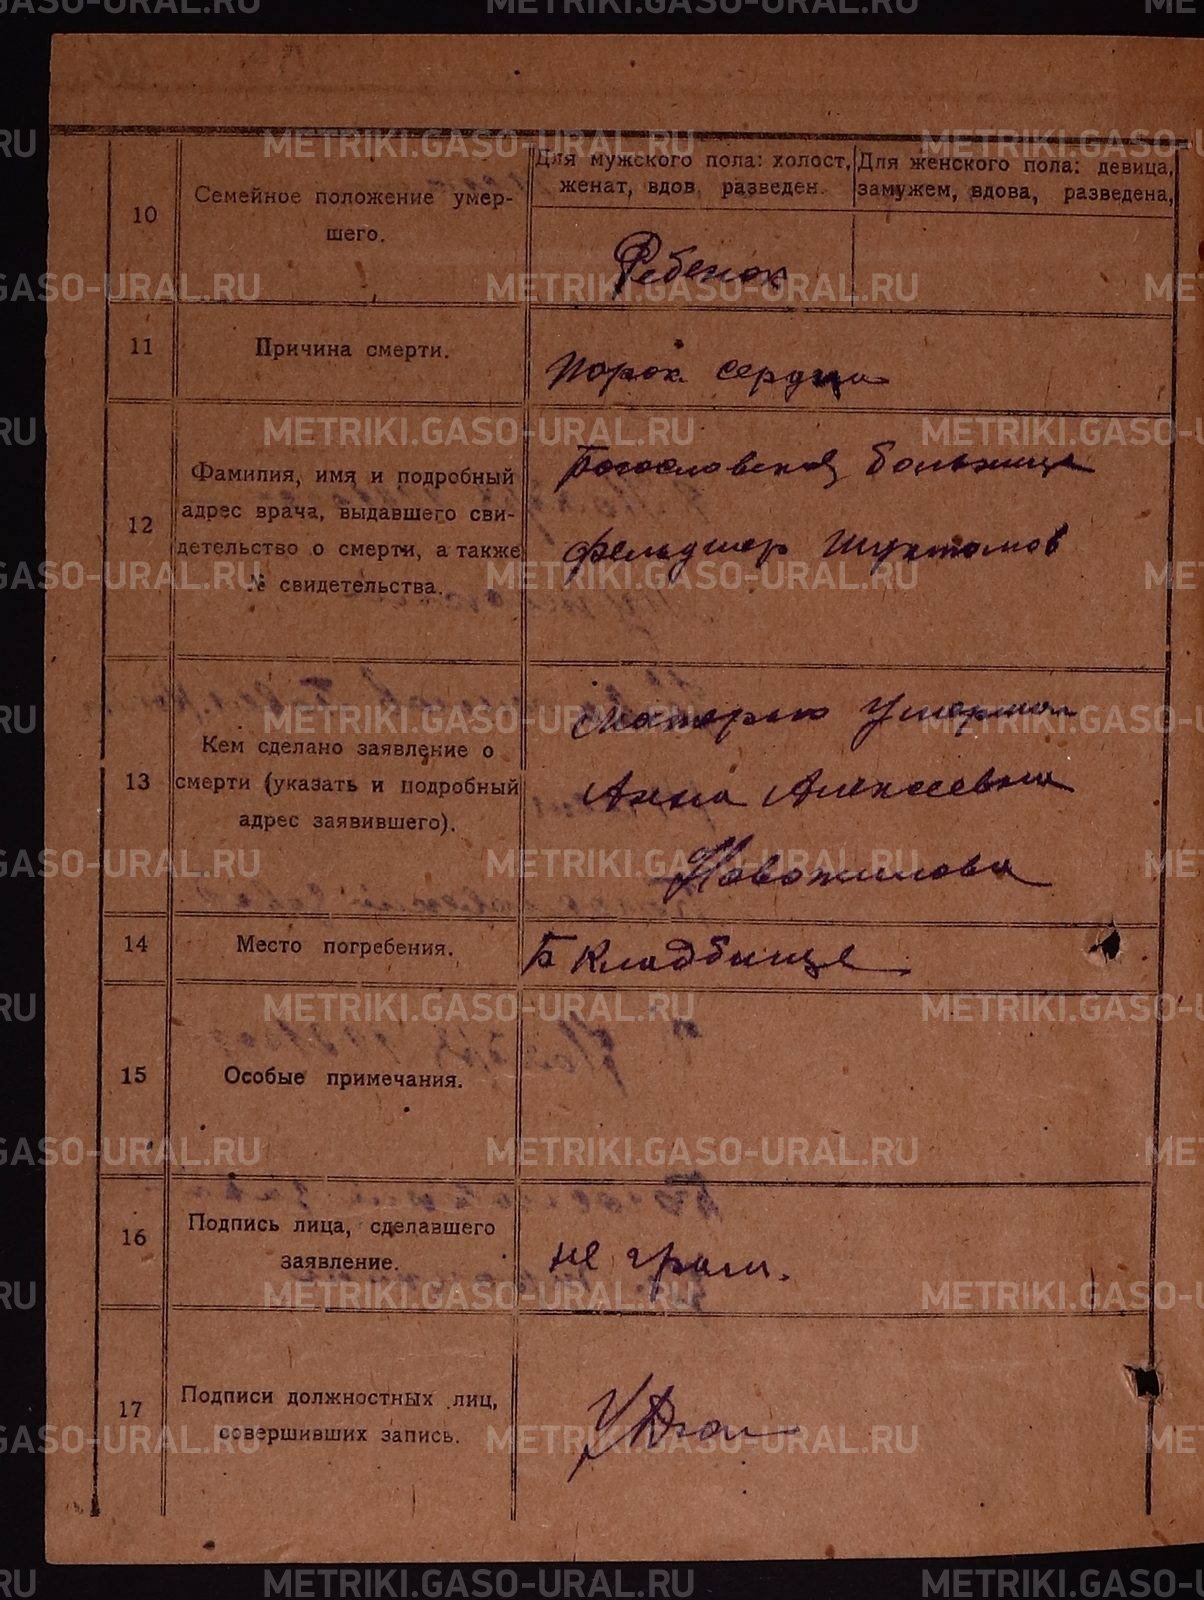 METRIKI.GASO-URAL.RU
10
Семейное положение умер-
шего.
Для мужского пола: холост,
женат, вдов, разведен.
Для женского пола: девица,
замужем, вдова, разведена,
Ребенок
11
Причина смерти.
Порок сердца
12
Фамилия, имя и подробный
адрес врача, выдавшего сви-
детельство о смерти, а также
№ свидетельства.
Богословской больнице
фельдшер
13
Кем сделано заявление о
смерти (указать и подробный
адрес заявившего).
Матерью
Анна Алексеевна
Новожилова
14
Место погребения.
Б кладбище
15
Особые примечания.
16
Подпись лица, сделавшего
заявление.
не грам.
17
Подписи должностных лиц,
совершивших запись.